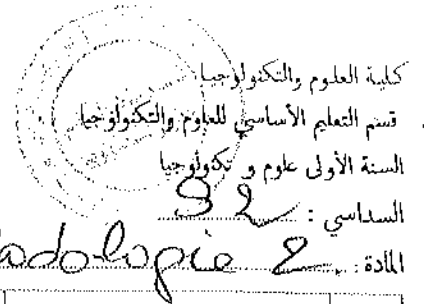 كلية العلوم والتكنولوجيا
قسم التعليم الأساسي للعلوم والتكنولوجيا
السنة الأولى علوم و تكنولوجيا
السداسي : S2
المادة : adologie 2